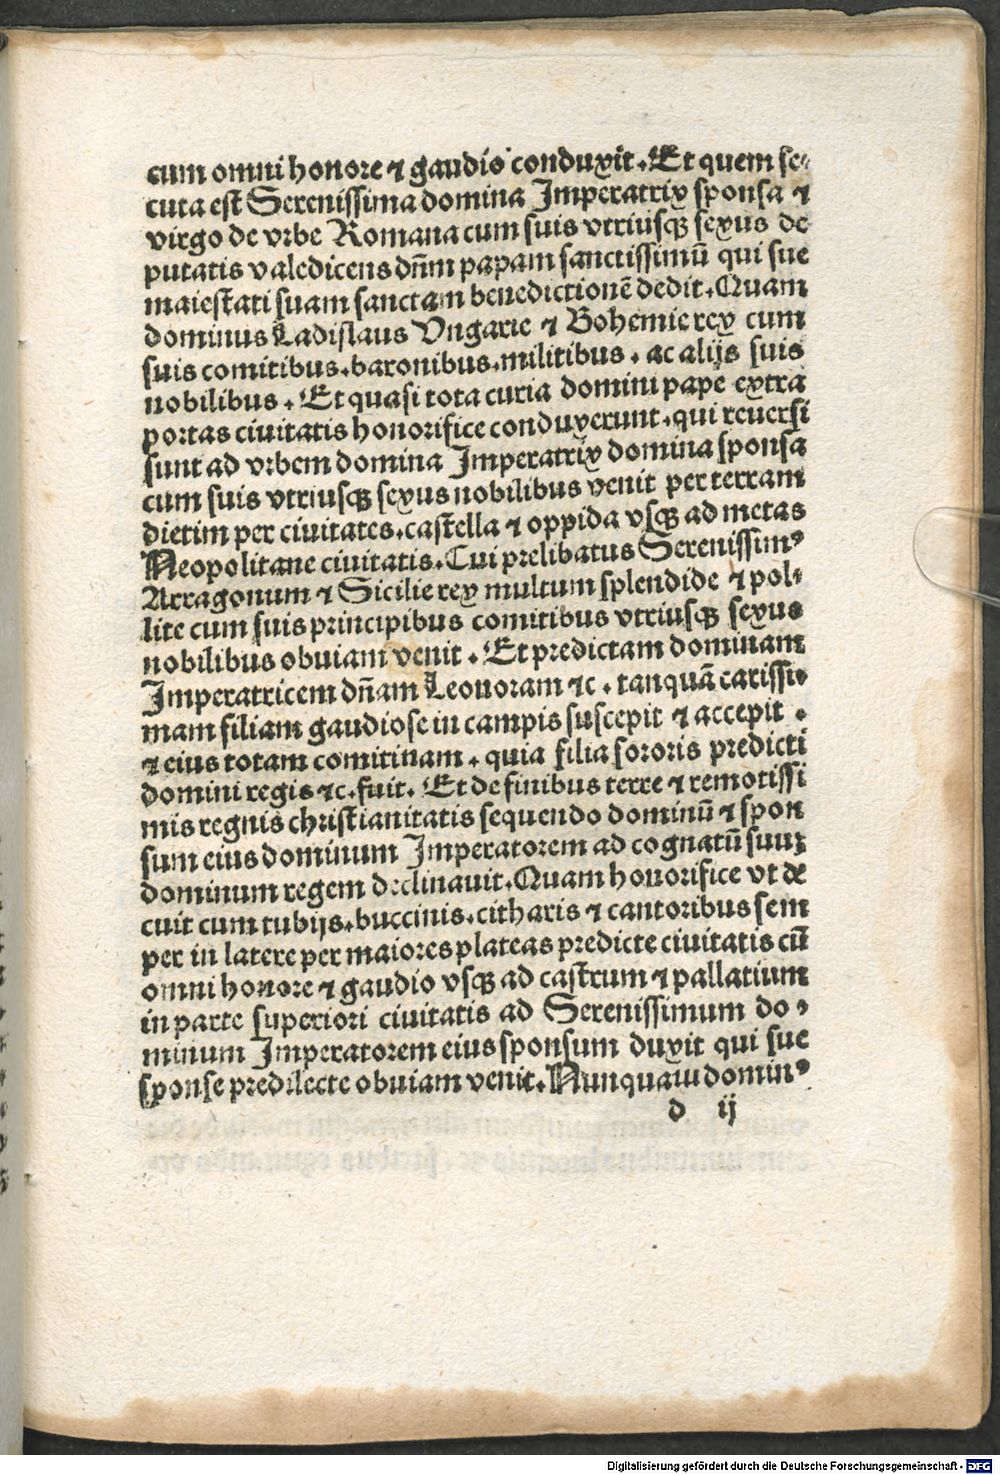 cum omni honore ⁊ gaudio conduxit. Et quem se⸗
cuta est Serenissima domina Imperatrix sponsa ⁊
virgo de vrbe Romana cum suis vtriusqꝫ sexus de
putatis valedicens dn̄m papam sanctissimū qui sue
maiestati suam sanctam benedictionē dedit. Quam
dominus Ladislaus Vngarie ⁊ Bohemie rex cum
suis comitibus. baronibus. militibus. ac alijs suis
nobilibus. Et quasi tota curia domini pape extra
portas ciuitatis honorifice conduxerunt. qui reuersi
sunt ad vrbem domina Imperatrix domina sponsa
cum suis vtriusqꝫ sexus nobilibus venit per terram
dietim per ciuitates. castella ⁊ oppida vsqꝫ ad metas
Neopolitane ciuitatis. Cui prelibatus Serenissimꝰ
Arragonum ⁊ Sicilie rex multum splendide ⁊ pol⸗
lite cum suis principibus comitibus vtriusqꝫ sexus
nobilibus obuiam venit. Et predictam dominam
Imperatricem dn̄am Leonoram ⁊c. tanquā carissi⸗
mam filiam gaudiose in campis suscepit ⁊ accepit.
⁊ eius totam comitinam. quia filia sororis predicti
domini regis ⁊c. fuit. Et de finibus terre ⁊ remotissi
mis regnis christianitatis sequendo dominū ⁊ spon
sum eius dominum Imperatorem ad cognatū suuꝫ
dominum regem declinauit. Quam honorifice vt de
cuit cum tubijs. buccinis. citharis ⁊ cantoribus sem
per in latere per maiores plateas predicte ciuitatis cū
omni honore ⁊ gaudio vsqꝫ ad castrum ⁊ pallatium
in parte superiori ciuitatis ad Serenissimum do⸗
minum Imperatorem eius sponsum duxit qui sue
sponse predilecte obuiam venit. Nunquam dominꝰ
d ij
Digitalisierung gefördert durch die Deutsche Forschungsgemeinschaft - DFG